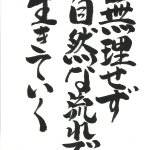 無理せず
自然な流れで
生きていく